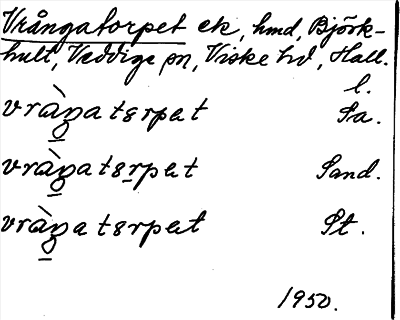 Vrångatorpet ek, hmd, Björk-
hult, Veddige sn, Viske hd, Hall.
l.
vràŋatɛrpat Sa.
vràŋatɛrpat Sand.
vràŋatɛrpat St.
1950.